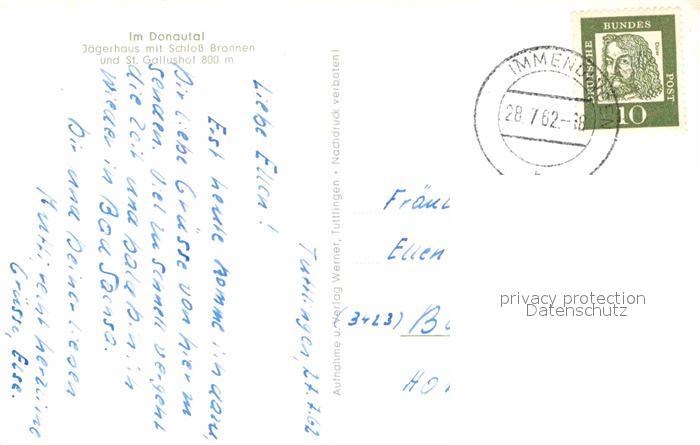 Im Donautal
Jägerhaus mit Schloß Bronnen
und St. Gallushof 800 m
Tuttlingen, 27.7.62
Liebe Ellen!
Erst heute komme ich dazu,
Dir liebe Grüsse von hier zu
senden. Viel zu schnell vergeht
die Zeit und bald bin ich
wieder in Bad Sachsa.
Dir und Deiner lieben
Mutti, recht herzliche
Grüsse, Else.
Aufnahme u. Verlag Werner, Tuttlingen · Nachdruck verboten!
DEUTSCHE
BUNDES
POST
Dürer
10
IMMEND
28.7.62.-18
Fräul
Ellen
(3423) Ba
privacy protection
Datenschutz